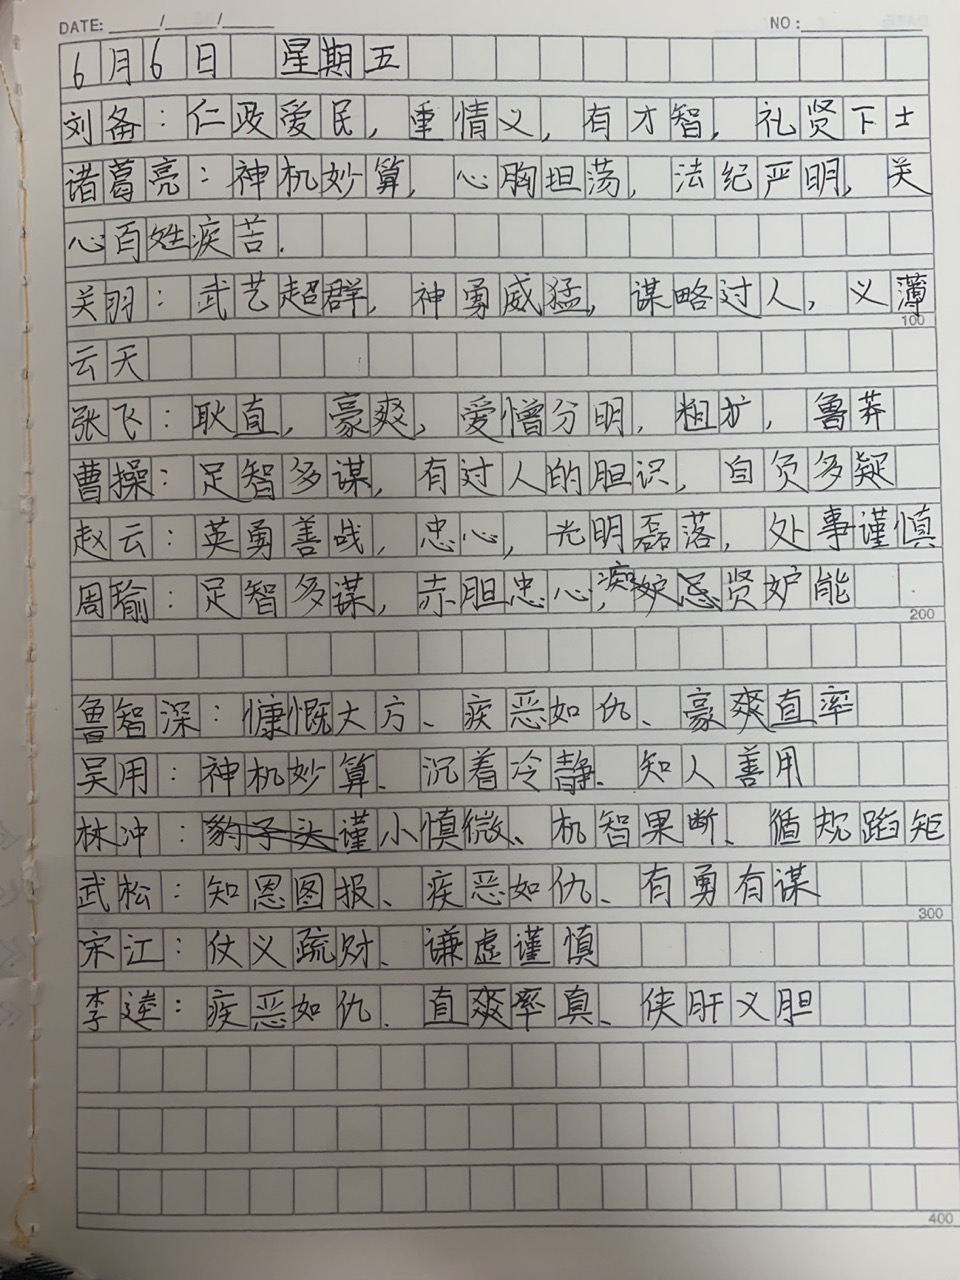 DATE: ____/____/____ NO:____________
6月6日 星期五
刘备：仁政爱民，重情义，有才智，礼贤下士
诸葛亮：神机妙算，心胸坦荡，法纪严明，关
心百姓疾苦．
关羽：武艺超群，神勇威猛，谋略过人，义薄
100
云天
张飞：耿直，豪爽，爱憎分明，粗犷，鲁莽
曹操：足智多谋，有过人的胆识，自负多疑
赵云：英勇善战，忠心，光明磊落，处事谨慎
周瑜：足智多谋，赤胆忠心，贤妒能
200
鲁智深：慷慨大方、疾恶如仇、豪爽直率
吴用：神机妙算、沉着冷静、知人善用
林冲：豹子头谨小慎微、机智果断、循规蹈矩
武松：知恩图报、疾恶如仇、有勇有谋
300
宋江：仗义疏财、谦虚谨慎
李逵：疾恶如仇、直爽率真、侠肝义胆
400